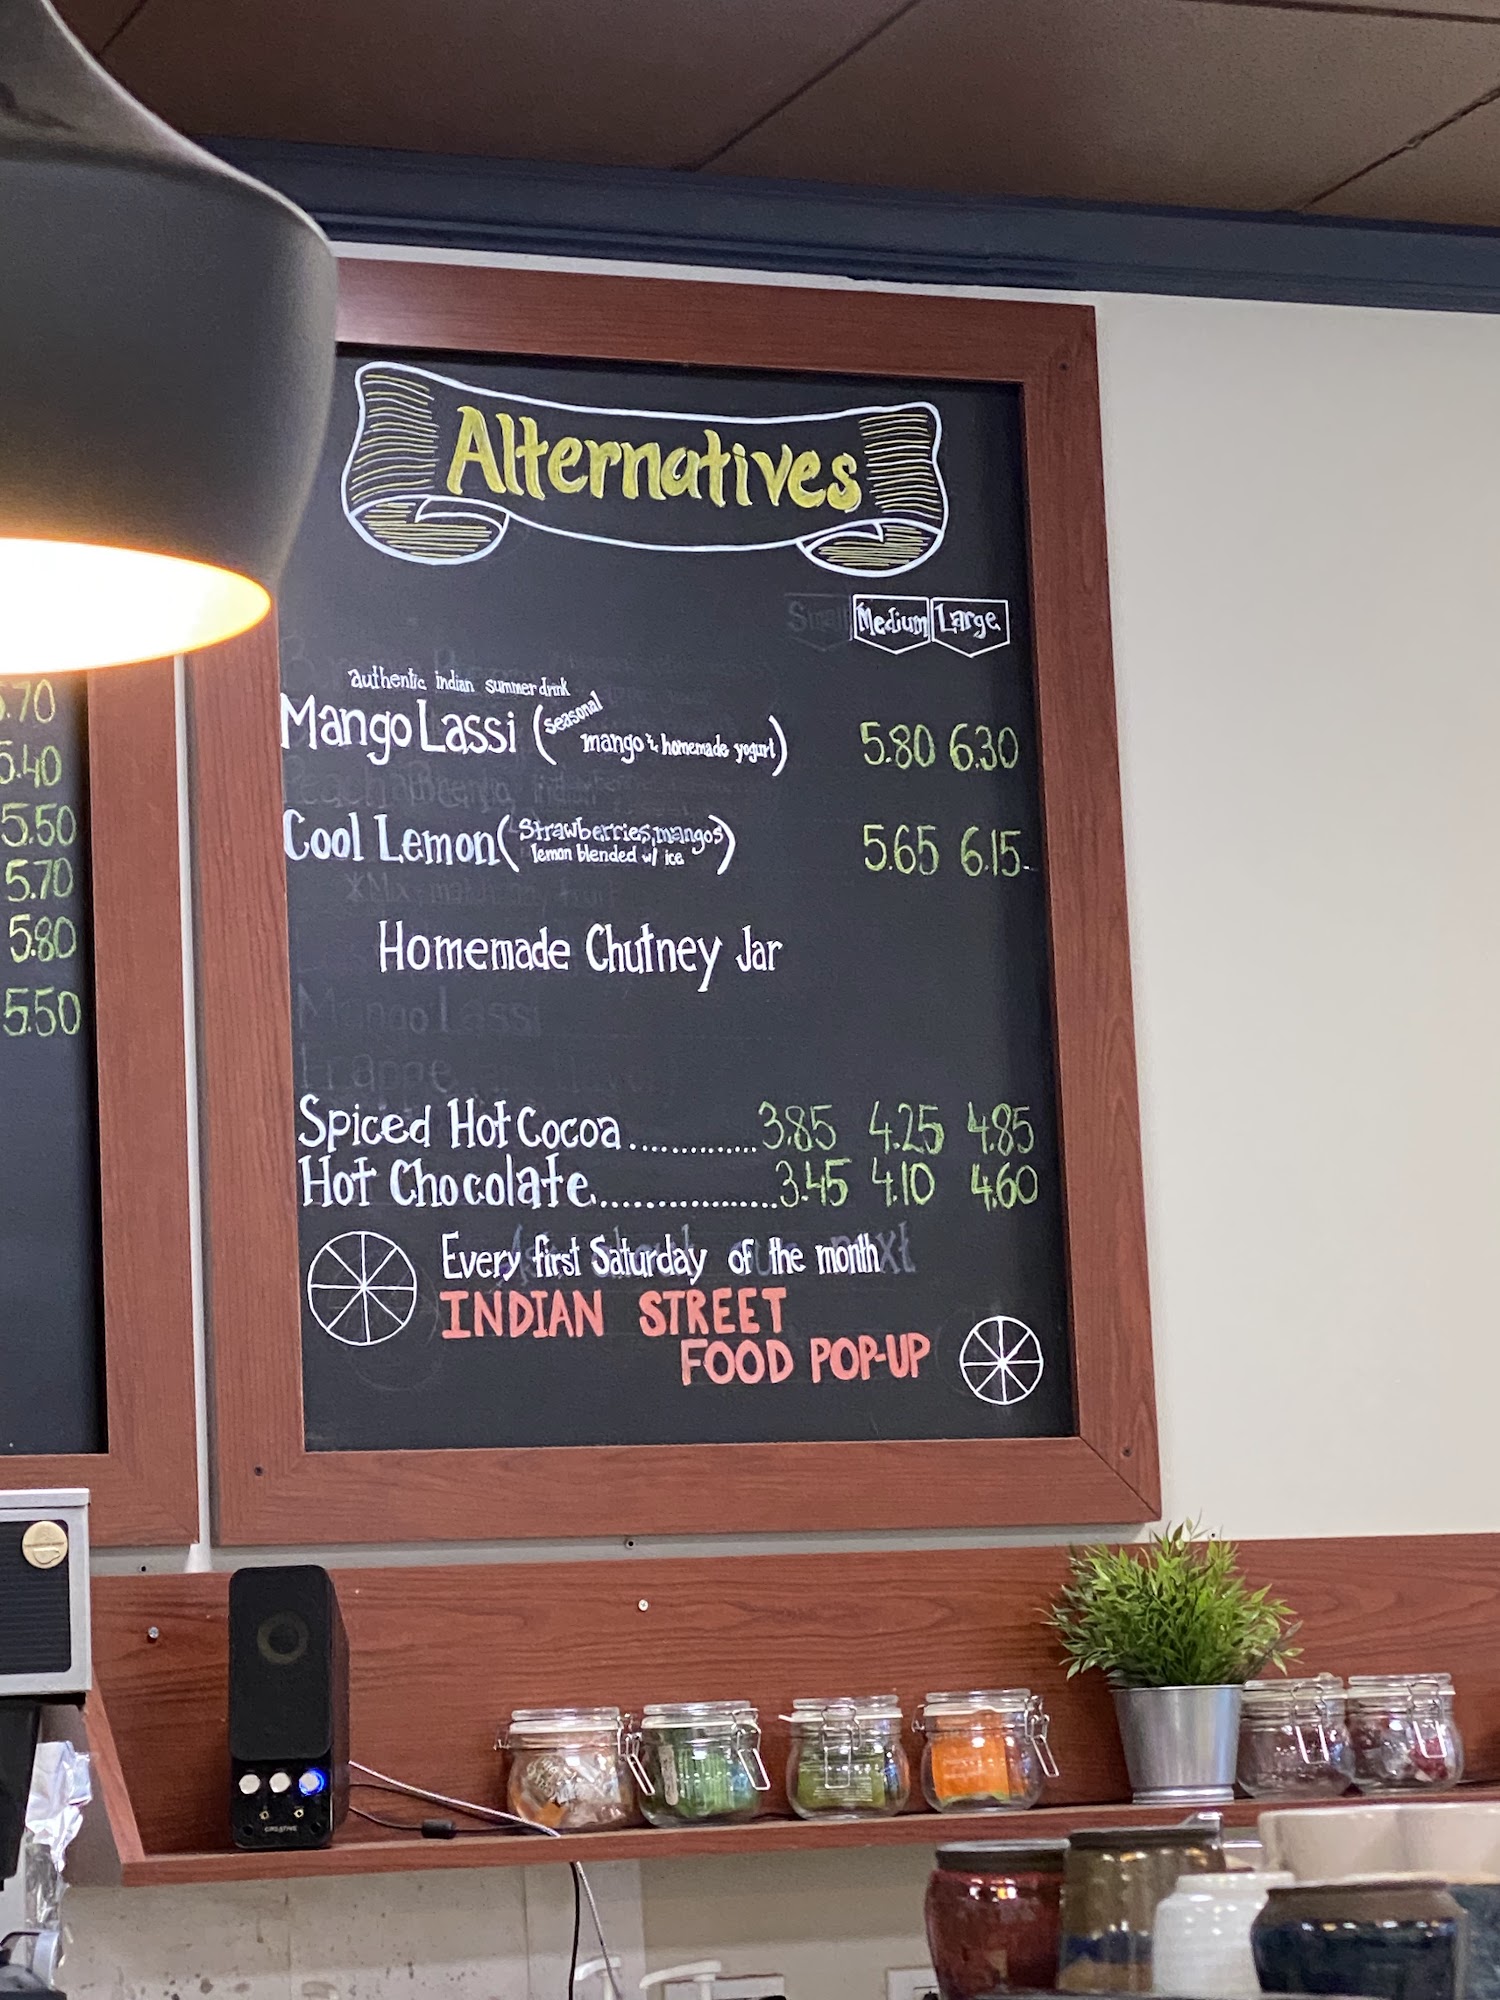 Alternatives
Small Medium Large
authentic indian summer drink
Mango Lassi (seasonal mango & homemade yogurt) 5.80 6.30
Cool Lemon (Strawberries, mangos lemon blended w/ ice) 5.65 6.15
Homemade Chutney Jar
Mango Lassi
Frappe
Spiced Hot Cocoa.............. 3.85 4.25 4.85
Hot Chocolate.................. 3.45 4.10 4.60
Every first Saturday of the month
INDIAN STREET
FOOD POP-UP
5.70
5.40
5.50
5.70
5.80
5.50
CREATIVE